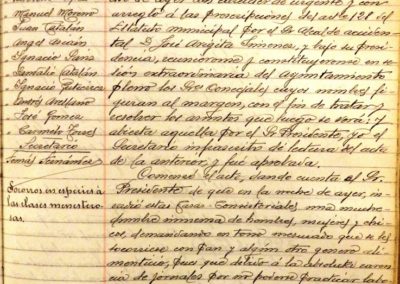 Manuel Moreno
Juan Catalán
Angel Accion
Ignacio Sainz
Santalio Catalán
Ignacio Gutierrez
Andrés Arellano
José Gomez
Carmelo
Secretario
Tomás Fernández
Socorros en especies á
las clases meneste­ro-
sas.
arreglo á las prescripciones del art.º 128 del
Estatuto municipal por el Sr. Alcalde acciden-
tal D. José Angleta Timenez, y bajo su presi-
dencia, reunieronse y constituyeronse en se-
sión extraordinaria del Ayuntamiento
pleno los Sres. Concejales cuyos nombres fi-
guran al margen, con el fin de tratar y
resolver los asuntos que luego se verá: y
abierta aquella por el Sr. Presidente, yo el
Secretario infrascrito dí lectura del acta
de la anterior, y fué aprobada.
Comenzó el acto, dando cuenta el Sr.
Presidente de que en la noche de ayer, in-
vadió estas Casas Consistoriales una muche-
dumbre inmensa de hombres, mujeres y chi-
cos, demandando en tono mesurado que se les
socorriese con pan y algún otro genero ali-
menticio, pues que debido á la absoluta caren-
cia de jornales por no poderse practicar labo-